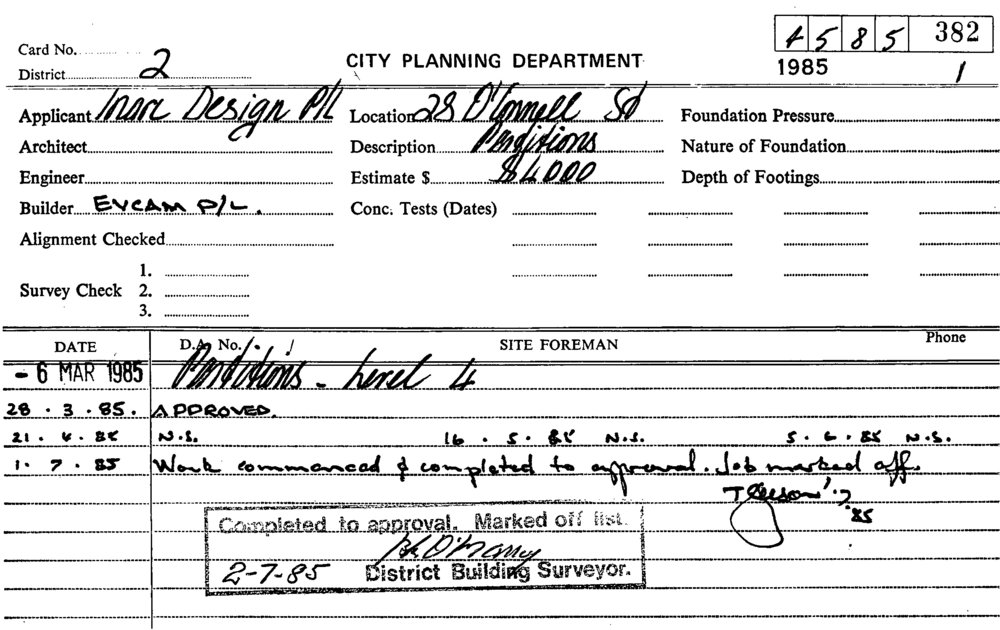 4585 382
Card No.
1985 1
District 2
CITY PLANNING DEPARTMENT
Applicant Design P/L Location 28 O'Connell St Foundation Pressure
Architect Description Partitions Nature of Foundation
Engineer Estimate $ $4000 Depth of Footings
Builder EVCAM P/L. Conc. Tests (Dates)
Alignment Checked
1.
Survey Check 2.
3.
DATE D.A. No. SITE FOREMAN Phone
- 6 MAR 1985 Partitions - Level 4
28 . 3 . 85. APPROVED.
21 . 4 . 85 N.S. 16 . 5 . 85 N.S. 5 . 6 . 85 N.S.
1 . 7 . 85 Work commenced & completed to approval. Job marked off.
85
Completed to approval. Marked off list.
2-7-85 District Building Surveyor.